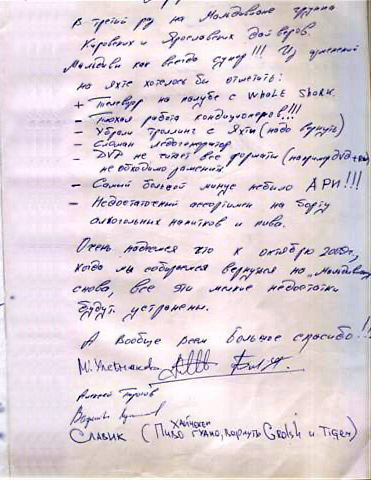 В третий раз на Мальдивах группа
Кировских и Ярославских дайверов.
Мальдивы как всегда супер!!! Из изменений
на яхте хотелось бы отметить:
+ Телевизор на палубе с Whole Shark.
- Плохая работа кондиционеров!!!
- Убрали троллинг с Яхты (надо вернуть)
- Сломан ледогенератор
- DVD не читает все форматы (например DVD+RW)
необходимо заменить
- Самый большой минус небыло АРИ!!!
- Недостаточный ассортимент на борту
алкогольных напитков и пива.
Очень надеемся что к октябрю
когда мы собираемся вернуться на
снова, все эти мелкие недостатки
будут устранены.
А вообще всем большое спасибо!!!
Алексей
СЛАВИК (ПИВО ХАЙНЕКЕН ГУАНО, вернуть Grolsh и Tiger)